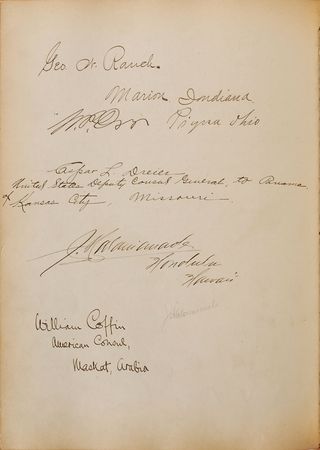 Geo. W. Rauch.
Marion Indiana
W. P. Orr Piqua Ohio
Caspar L. Dreier
United States Deputy Consul General, to Panama
of Kansas City, Missouri.
J. Kalanianaole
Honolulu
Hawaii
William Coffin
American Consul,
Maskat, Arabia